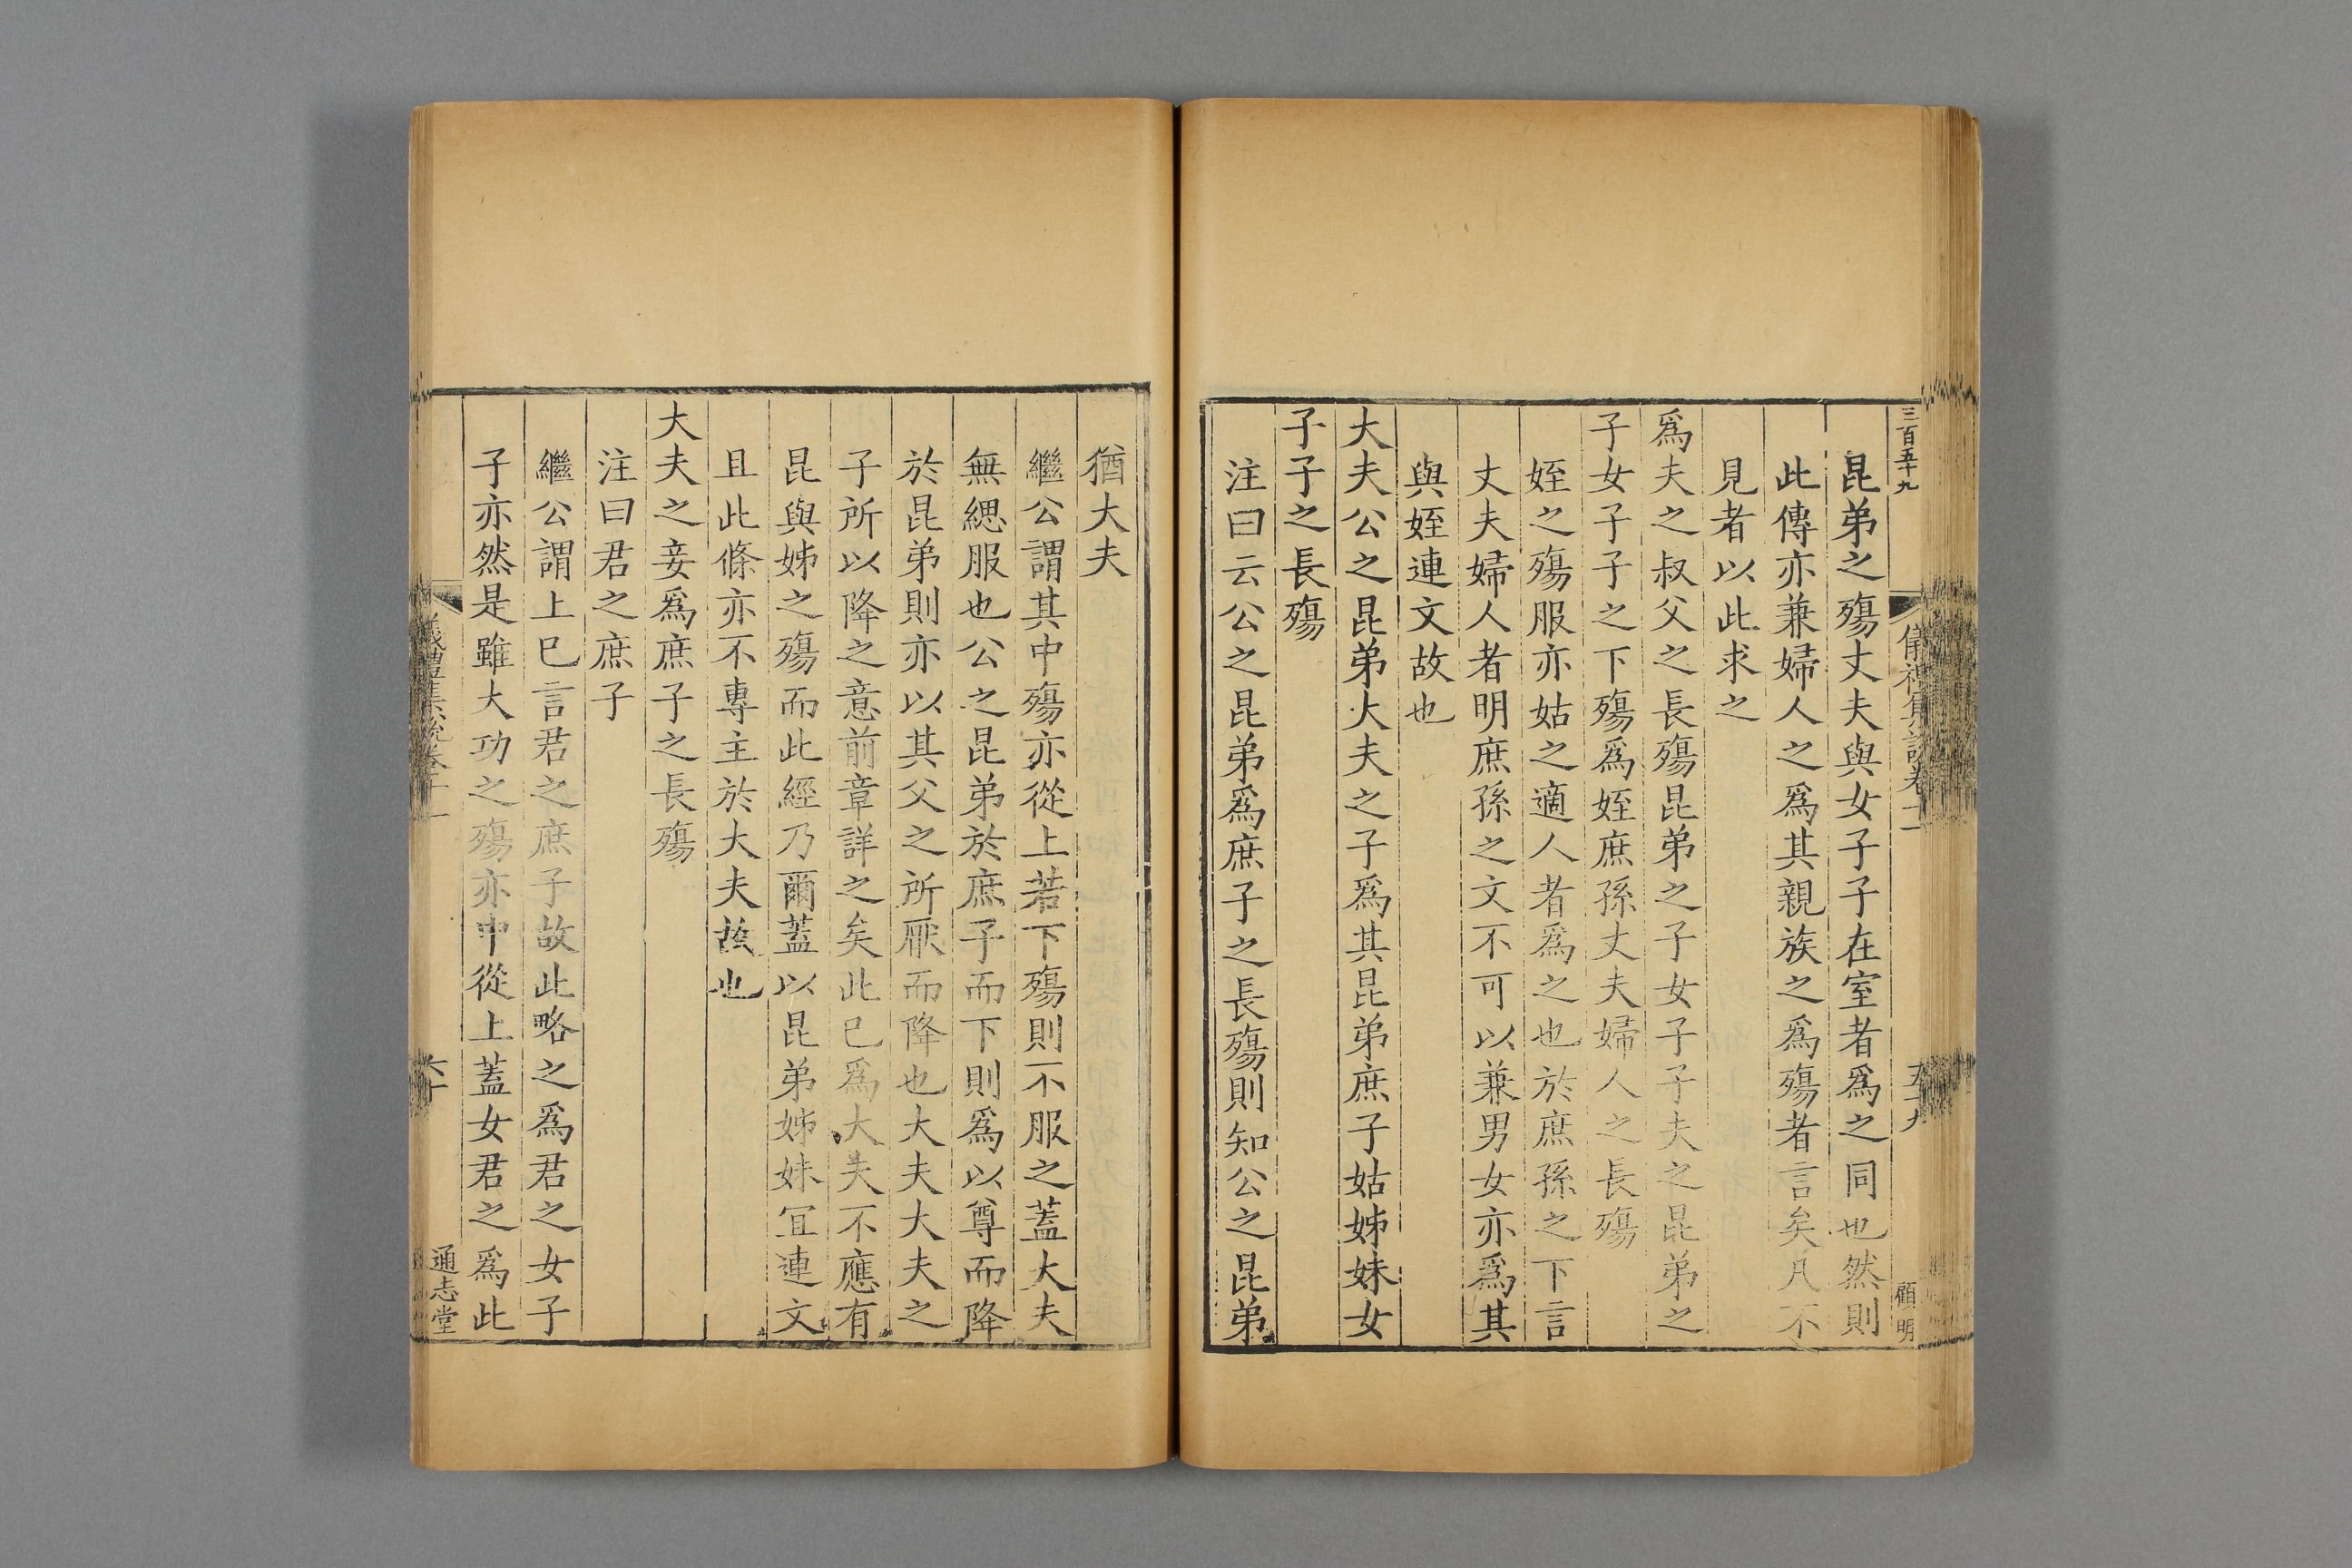 三百五十九
儀禮集說卷十一
五十九
顧明
昆弟之殤丈夫與女子子在室者爲之同也然則
此傳亦兼婦人之爲其親族之爲殤者言矣凡不
見者以此求之
爲夫之叔父之長殤昆弟之子女子子夫之昆弟之
子女子子之下殤爲姪庶孫丈夫婦人之長殤
姪之殤服亦姑之適人者爲之也於庶孫之下言
丈夫婦人者明庶孫之文不可以兼男女亦爲其
與姪連文故也
大夫公之昆弟大夫之子爲其昆弟庶子姑姊妹女
子子之長殤
注曰云公之昆弟爲庶子之長殤則知公之昆弟
猶大夫
繼公謂其中殤亦從上若下殤則不服之蓋大夫
無緦服也公之昆弟於庶子而下則爲以尊而降
於昆弟則亦以其父之所厭而降也大夫大夫之
子所以降之意前章詳之矣此已爲大夫不應有
昆與姊之殤而此經乃爾蓋以昆弟姊妹宜連文
且此條亦不專主於大夫故也
大夫之妾爲庶子之長殤
注曰君之庶子
繼公謂上已言君之庶子故此略之爲君之女子
子亦然是雖大功之殤亦中從上蓋女君之爲此
儀禮集說卷十一
六十
通志堂